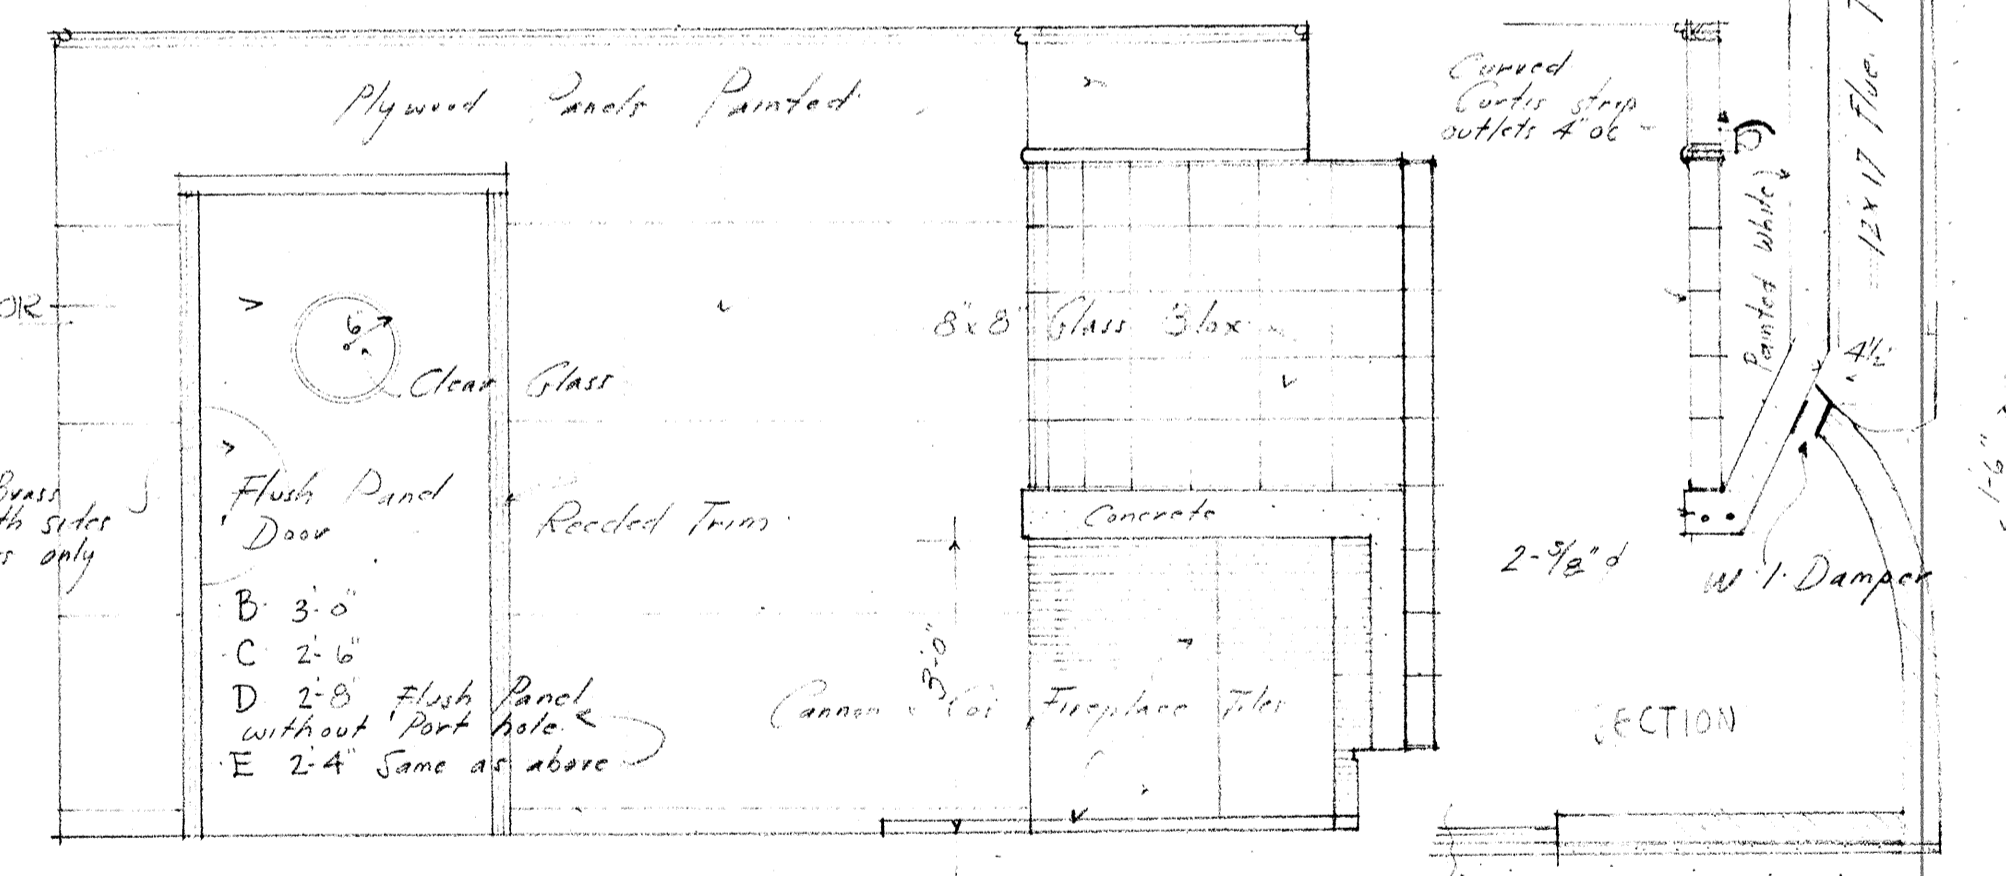 Plywood Panels Painted
Curved
Curtis strip
outlets 4" oc
12 x 17 Flue
Painted White
OR
6"
8"x8" Glass Blox
4½"
Clear Glass
Brass
sides
only
Flush Panel
Door
Reeded Trim
Concrete
1'-6"
2-⅝" ϕ
W.I. Damper
B 3'-0"
C 2'-6"
D 2'-8" Flush Panel
without Port hole
E 2'-4" Same as above
3'-0"
Cannon & Co. Fireplace Tiles
SECTION